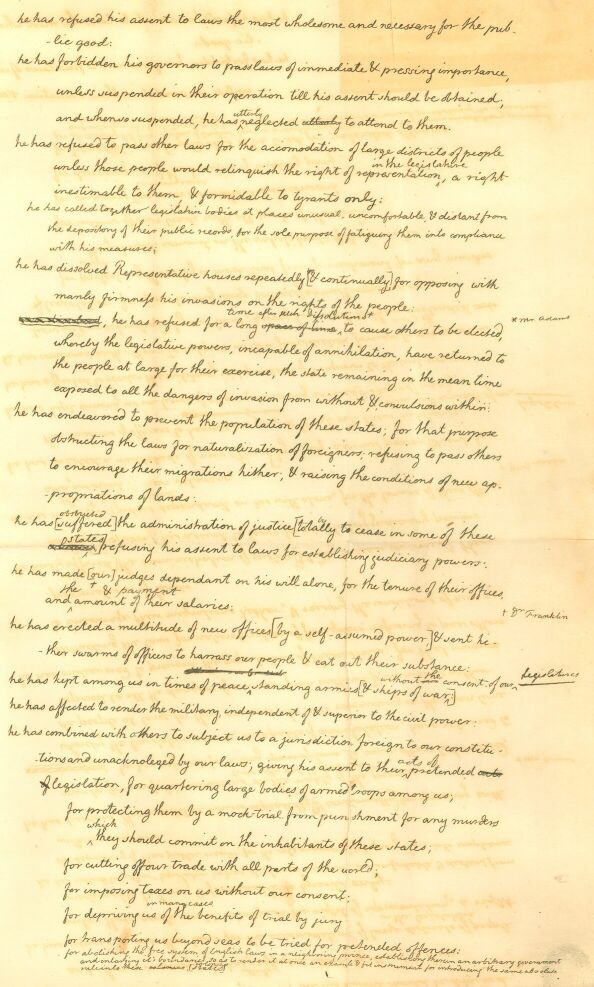 he has refused his assent to laws the most wholesome and necessary for the pub-
-lic good:
he has forbidden his governors to pass laws of immediate & pressing importance,
unless suspended in their operation till his assent should be obtained;
utterly
and when so suspended, he has neglected utterly to attend to them.
he has refused to pass other laws for the accomodation of large districts of people
in the legislature
unless those people would relinquish the right of representation, a right
inestimable to them, & formidable to tyrants only:
he has called together legislative bodies at places unusual, uncomfortable, & distant from
the depository of their public records, for the sole purpose of fatiguing them into compliance
with his measures;
he has dissolved Representative houses repeatedly [& continually] for opposing with
manly firmness his invasions on the rights of the people:
time after such dissolutions +
he has refused for a long space of time, to cause others to be elected,
* Mr. Adams
whereby the legislative powers, incapable of annihilation, have returned to
the people at large for their exercise, the state remaining in the mean time
exposed to all the dangers of invasion from without & convulsions within:
he has endeavored to prevent the population of these states; for that purpose
obstructing the laws for naturalization of foreigners; refusing to pass others
to encourage their migrations hither; & raising the conditions of new ap-
-propriations of lands:
obstructed
he has [suffered] the administration of justice [totally to cease in some of these
states] refusing his assent to laws for establishing judiciary powers:
he has made [our] judges dependant on his will alone, for the tenure of their offices,
the + & payment
and amount of their salaries:
+ Dr. Franklin
he has erected a multitude of new offices [by a self-assumed power] & sent hi-
-ther swarms of officers to harrass our people & eat out their substance:
without the consent of our legislatures
he has kept among us in times of peace, standing armies [& ships of war;]
he has affected to render the military, independent of & superior to the civil power:
he has combined with others to subject us to a jurisdiction foreign to our constitu-
acts of
-tions and unacknoleged by our laws; giving his assent to their pretended acts
of legislation, for quartering large bodies of armed troops among us;
for protecting them by a mock-trial from punishment for any murders
which
they should commit on the inhabitants of these states;
for cutting off our trade with all parts of the world;
for imposing taxes on us without our consent;
in many cases
for depriving us of the benefits of trial by jury
for transporting us beyond seas to be tried for pretended offences:
for abolishing the free system of English laws in a neighboring province, establishing therein an arbitrary government
and enlarging it's boundaries so as to render it at once an example & fit instrument for introducing the same absolute
rule into these colonies [states]